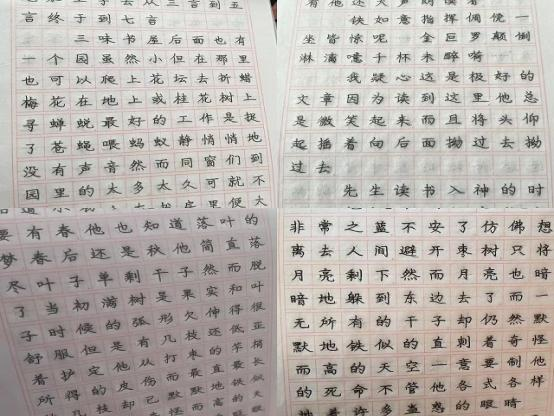 去从三言到五
言终于到七言
三味书屋后面也有
一个园虽然小但在那里
也可以爬上花坛去折蜡
梅花在地上或桂花树上
寻蝉蜕最好的工作是捉
了苍蝇喂蚂蚁静悄悄地
没有声音然而同窗们到
园里的太多太久可就不
铁如意指挥倜傥一
坐皆惊呢 金叵罗颠倒
淋漓噫千杯未醉嗬
我疑心这是极好的
文章因为读到这里他总
是微笑起来而且将头仰
起摇着向后面拗过去拗
过去
先生读书入神的时
要有春他也知道落叶的
梦春后还是秋他简直落
尽叶子单剩干子然而脱
了当初满树是果实和叶
子时候的弧形欠伸得很
舒服但是有几枝还低亚
着护定他从打枣的竿梢
所得的皮伤而最直最长
几枝却已默默地铁似
非常之蓝不安了仿佛想
离去人间避开枣树只将
月亮剩下然而月亮也暗
暗地躲到东边去了而一
无所有的干子却仍然默
默地铁似的直刺着奇怪
而高的天空一意要制他
的死命不管他各式各样
地着许多蛊惑的眼睛